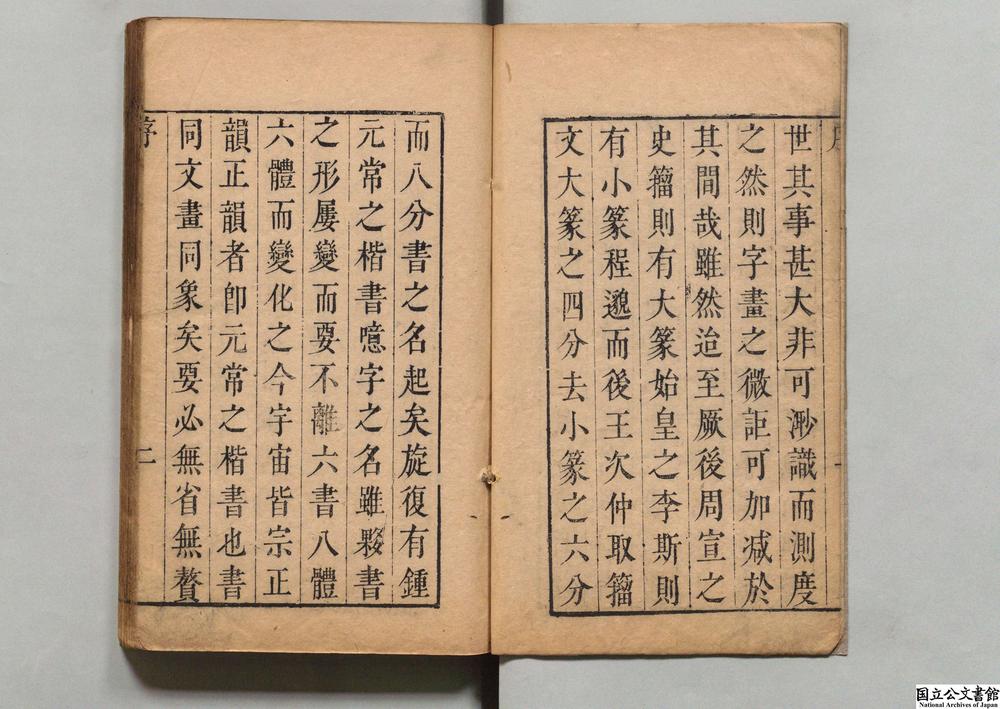 世其事甚大非可渺識而測度
之然則字畫之微詎可加减於
其間哉雖然迨至厥後周宣之
史籀則有大篆始皇之李斯則
有小篆程邈而後王次仲取籀
文大篆之四分去小篆之六分
而八分書之名起矣旋復有鍾
元常之楷書噫字之名雖夥書
之形屢變而要不離六書八體
六體而變化之今宇宙皆宗正
韻正韻者卽元常之楷書也書
同文畫同象矣要必無省無贅
序
二
国立公文書館
National Archives of Japan